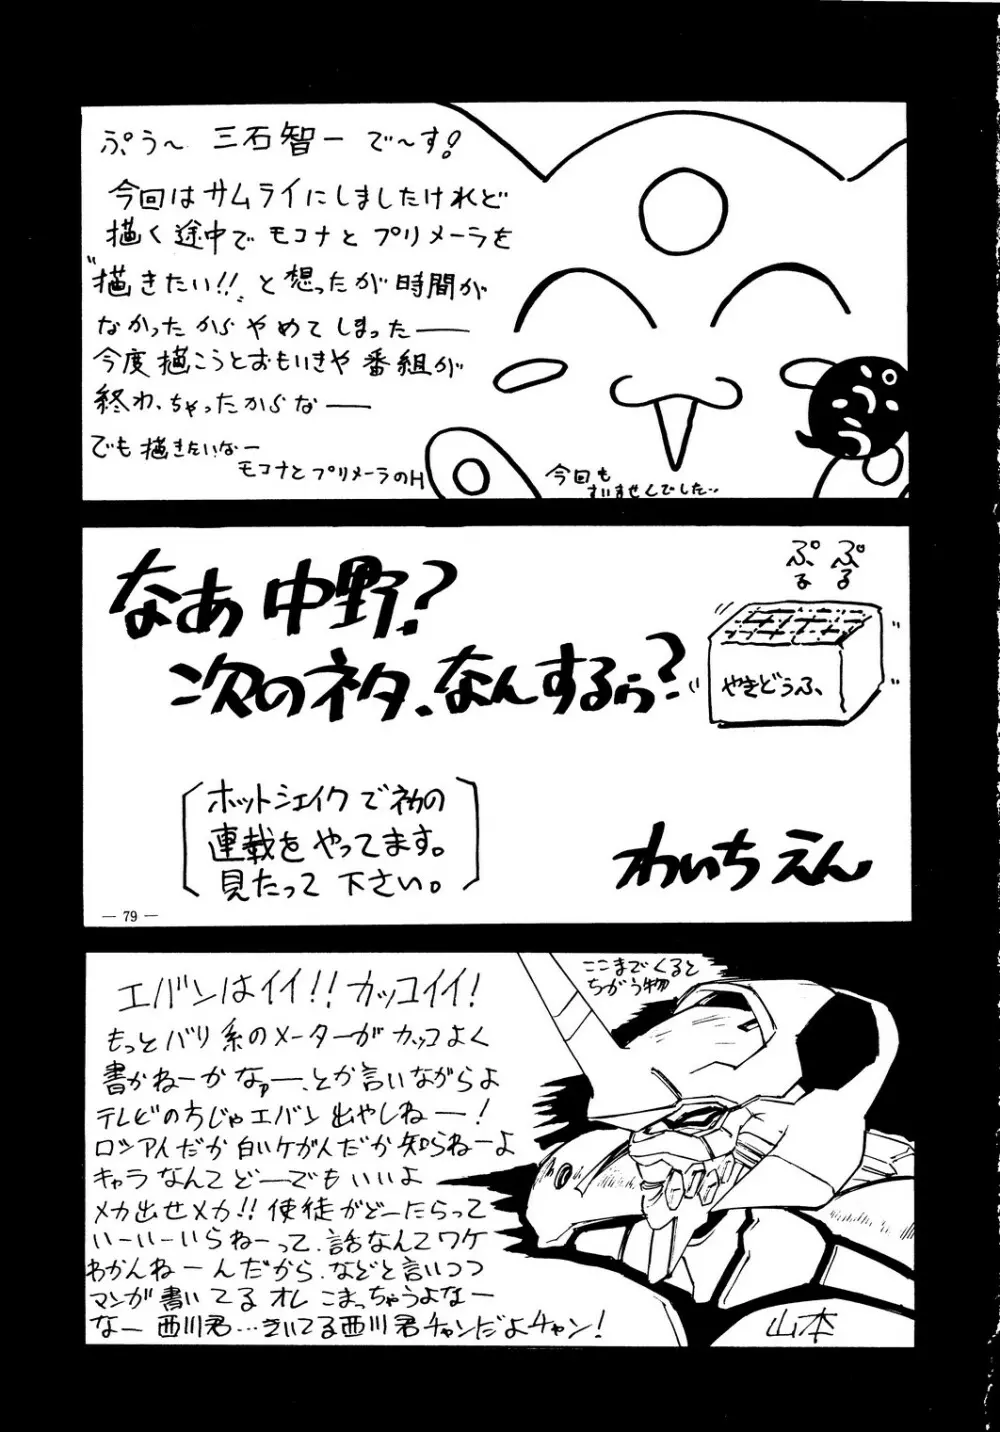 ぷぅ〜 三石智一 で〜す!
今回はサムライにしましたけれど
描く途中でモコナとプリメーラを
"描きたい!!"と想ったが時間が
なかったからやめてしまった——
今度描こうとおもいきや番組が
終わっちゃったからなー
でも描きたいなー
モコナとプリメーラのH
今回も
すいませんでした..
なあ中野?
次のネタ、なんするら?
ぷるぷる
やきどうふ、
ホットシェイクで初の
連載をやってます。
見たって下さい。
わいちえん
— 79 —
エバンはイイ!!カッコイイ!
もっとバリ系のメーターがカッコよく
書かねーかなァー、とか言いながらよ
テレビのちじゃエバン出やしねー!
ロシアんだか白いケがんだか知らねーよ
キャラなんてどーでもいいよ
メカ出せメカ!!使徒がどーたらって
いーいーいらねーって、話なんてワケ
わかんねーんだから、などと言いつつ
マンガ書いてるオレこまっちゃうよなー
なー西川君…きいてる西川君チャンだよチャン!
ここまでくると
ちがう物
山本